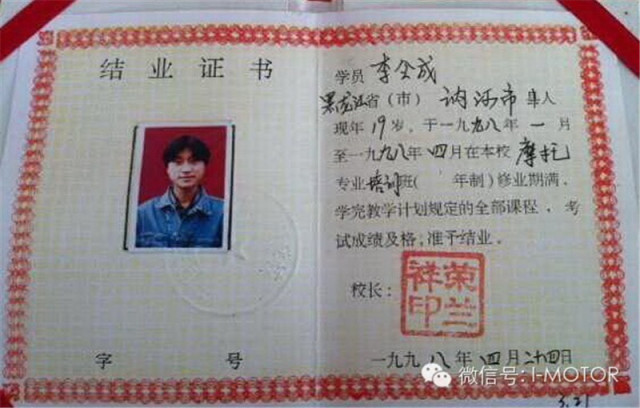 结业证书
字 号
学员 李全成
黑龙江省（市） 讷河市 县人
现年19岁，于一九九八年一月
至一九九八年四月在本校 摩托
专业培训班( 年制)修业期满，
学完教学计划规定的全部课程，考
试成绩及格，准予结业。
校长：
荣兰祥印
一九九八年四月二十四日
微信号: I-MOTOR